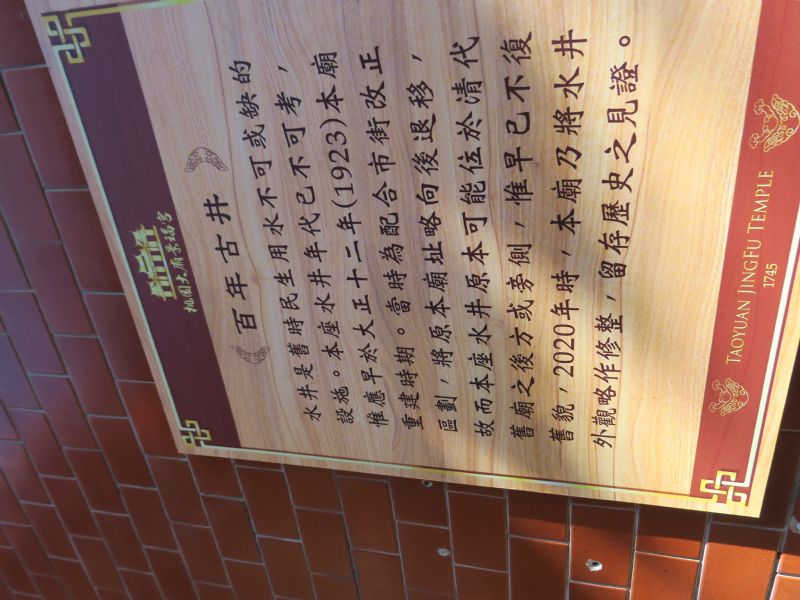 桃園大廟景福宮
百年古井
水井是舊時民生用水不可或缺的
設施。本座水井年代已不可考，
惟應早於大正十二年(1923)本廟
重建時期。當時為配合市街改正
區劃，將原本廟址略向後退移，
故而本座水井原本可能位於清代
舊廟之後方或旁側，惟早已不復
舊貌，2020年時，本廟乃將水井
外觀略作修整，留存歷史之見證。
TAOYUAN JINGFU TEMPLE
1745